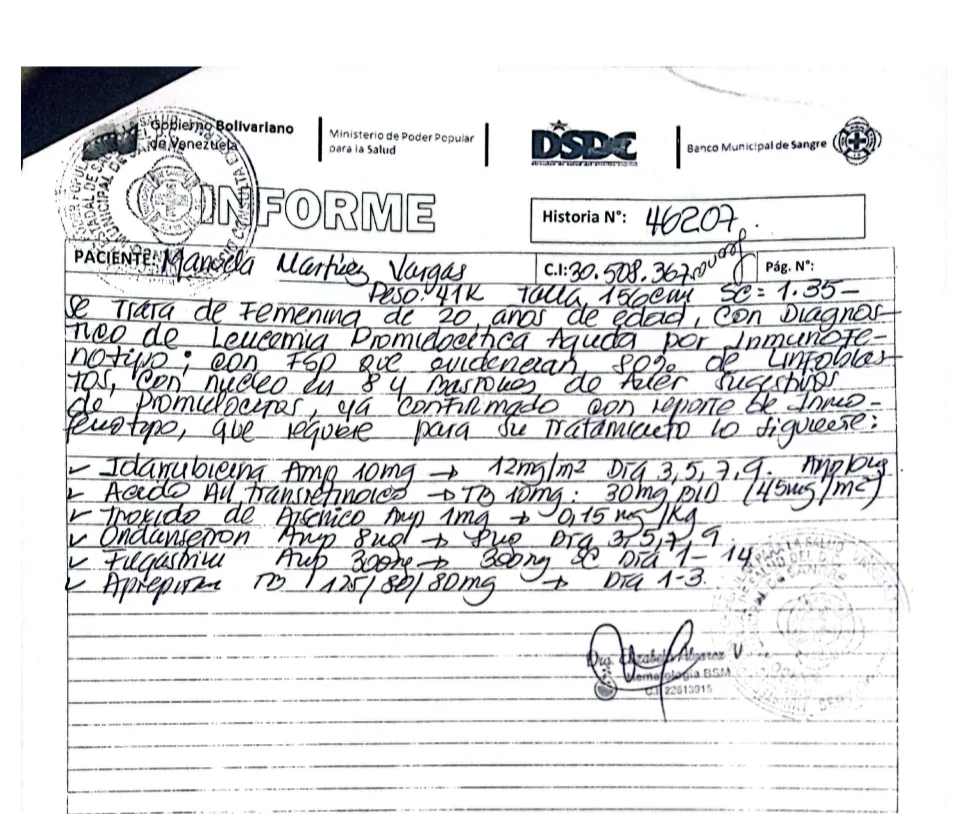 Gobierno Bolivariano
de Venezuela
Ministerio de Poder Popular
para la Salud
DSDC
Banco Municipal de Sangre
INFORME
Historia N°: 46207.
PACIENTE: Manuela Martinez Vargas C.I: 30.508.367 Pág. N°:
Peso: 41K Talla 156cm SC = 1.35-
Se Trata de Femenina de 20 años de edad, con Diagnos-
tico de Leucemia Promielocitica Aguda por Inmunofe-
notipo; con FSP que evidencian, 80% de Linfoblas-
tos, con nucleo en 8 y Bastones de Auer sugestivos
de Promielocitos, ya confirmado con reporte de Inmo-
fenotipo, que requiere para su Tratamiento lo siguiente:
✓ Idarrubicina Amp 10mg → 12mg/m2 Dia 3,5,7,9.
✓ Acido All transretinoico → TB 10mg: 30mg BID (45mg/m2)
✓ Trioxido de Arsenico Amp 1mg → 0,15 mg/Kg
✓ Ondansetron Amp 8mg → 8mg Dia 3,5,7,9.
✓ Filgastrim Amp 300mg → 300mg SC Dia 1-14
✓ Aprepitan TB 125/80/80mg → Dia 1-3.
Dra. Elizabeth Alvarez V
Hematologia BSM
C.I. 22613915